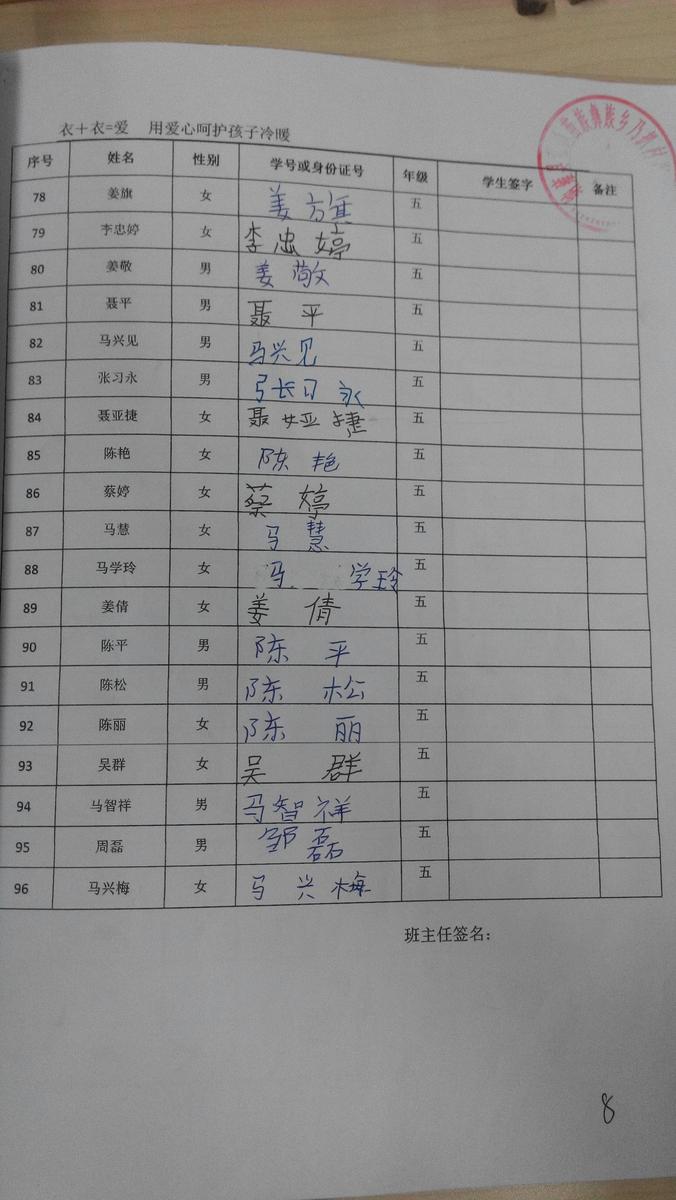 衣＋衣=爱 用爱心呵护孩子冷暖
苗族彝族乡乃
序号 姓名 性别 学号或身份证号 年级 学生签字 备注
78 姜旗 女 姜旗 五
79 李忠婷 女 李忠婷 五
80 姜敬 男 姜敬 五
81 聂平 男 聂平 五
82 马兴见 男 马兴见 五
83 张习永 男 张习永 五
84 聂亚捷 女 聂娅捷 五
85 陈艳 女 陈艳 五
86 蔡婷 女 蔡婷 五
87 马慧 女 马慧 五
88 马学玲 女 马学玲 五
89 姜倩 女 姜倩 五
90 陈平 男 陈平 五
91 陈松 男 陈松 五
92 陈丽 女 陈丽 五
93 吴群 女 吴群 五
94 马智祥 男 马智祥 五
95 周磊 男 邹磊 五
96 马兴梅 女 马兴梅 五
班主任签名：
8